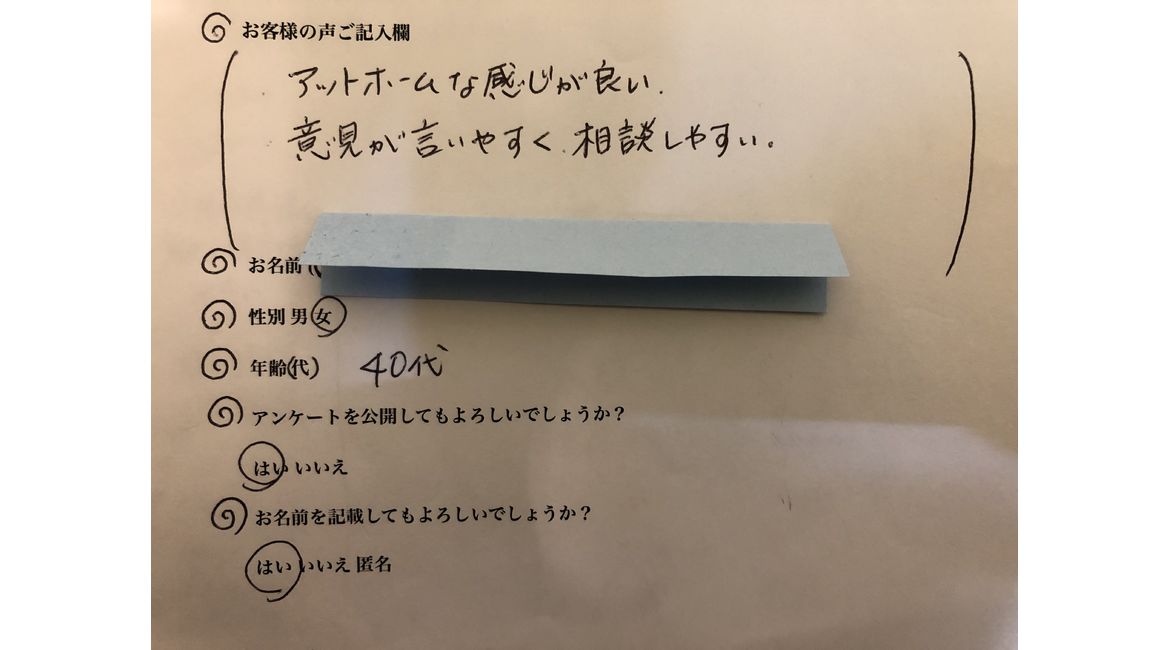 お客様の声ご記入欄
アットホームな感じが良い.
意見が言いやすく.相談しやすい。
お名前 (
性別 男 女
年齢(代) 40代
アンケートを公開してもよろしいでしょうか？
はい いいえ
お名前を記載してもよろしいでしょうか？
はい いいえ 匿名